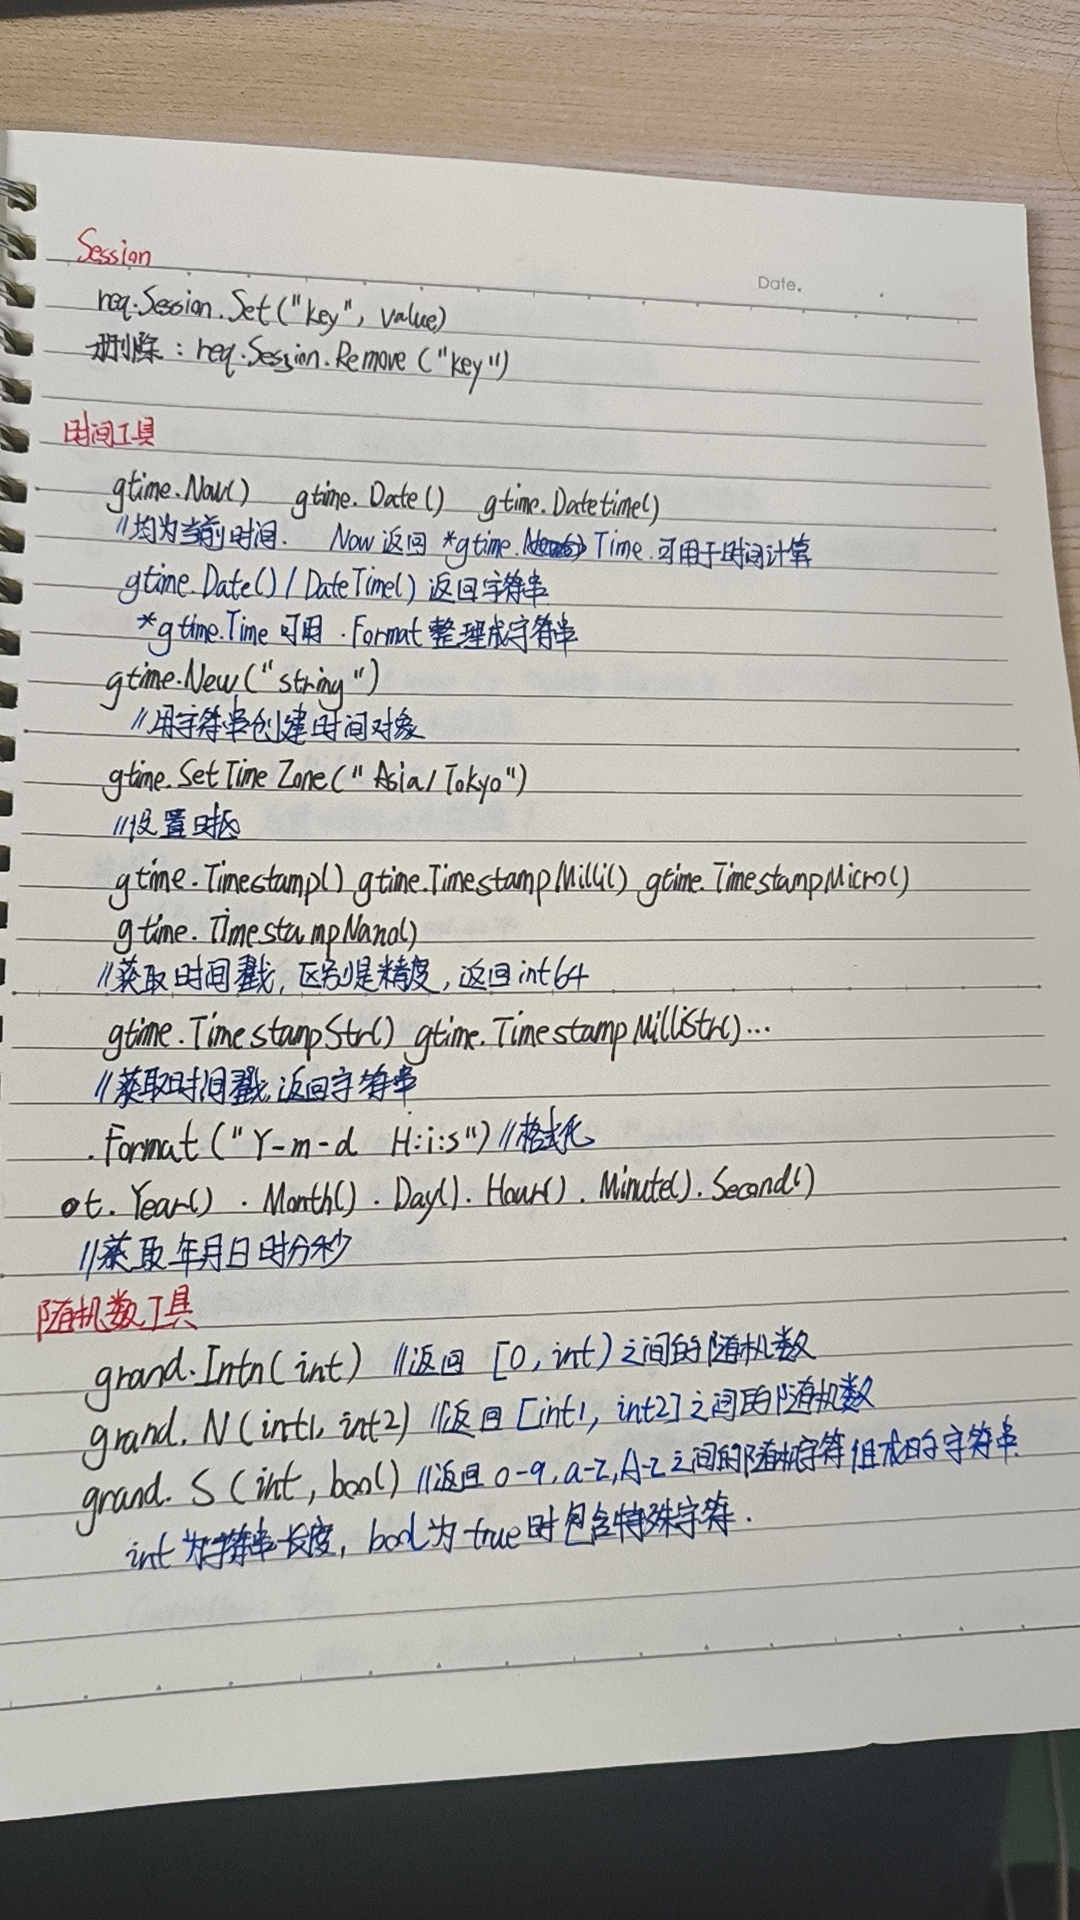 Date.
Session
req.Session.Set("key", value)
删除：req.Session.Remove("key")
时间工具
gtime.Now() gtime.Date() gtime.Datetime()
//均为当前时间. Now返回 *gtime.Time.可用于时间计算
gtime.Date()/DateTime() 返回字符串
*gtime.Time 可用 .Format 整理成字符串
gtime.New("string")
//用字符串创建时间对象
gtime.SetTimeZone("Asia/Tokyo")
//设置时区
gtime.Timestamp() gtime.TimestampMilli() gtime.TimestampMicro()
gtime.TimestampNano()
//获取时间戳, 区别是精度, 返回int64
gtime.TimestampStr() gtime.TimestampMilliStr()...
//获取时间戳,返回字符串
.Format("Y-m-d H:i:s") //格式化
t.Year() .Month() .Day() .Hour() .Minute() .Second()
//获取年月日时分秒
随机数工具
grand.Intn(int) //返回 [0, int) 之间的随机数
grand.N(int1, int2) //返回[int1, int2]之间的随机数
grand.S(int, bool) //返回0-9,a-z,A-Z之间的随机字符组成的字符串
int为字符串长度, bool为true时包含特殊字符.